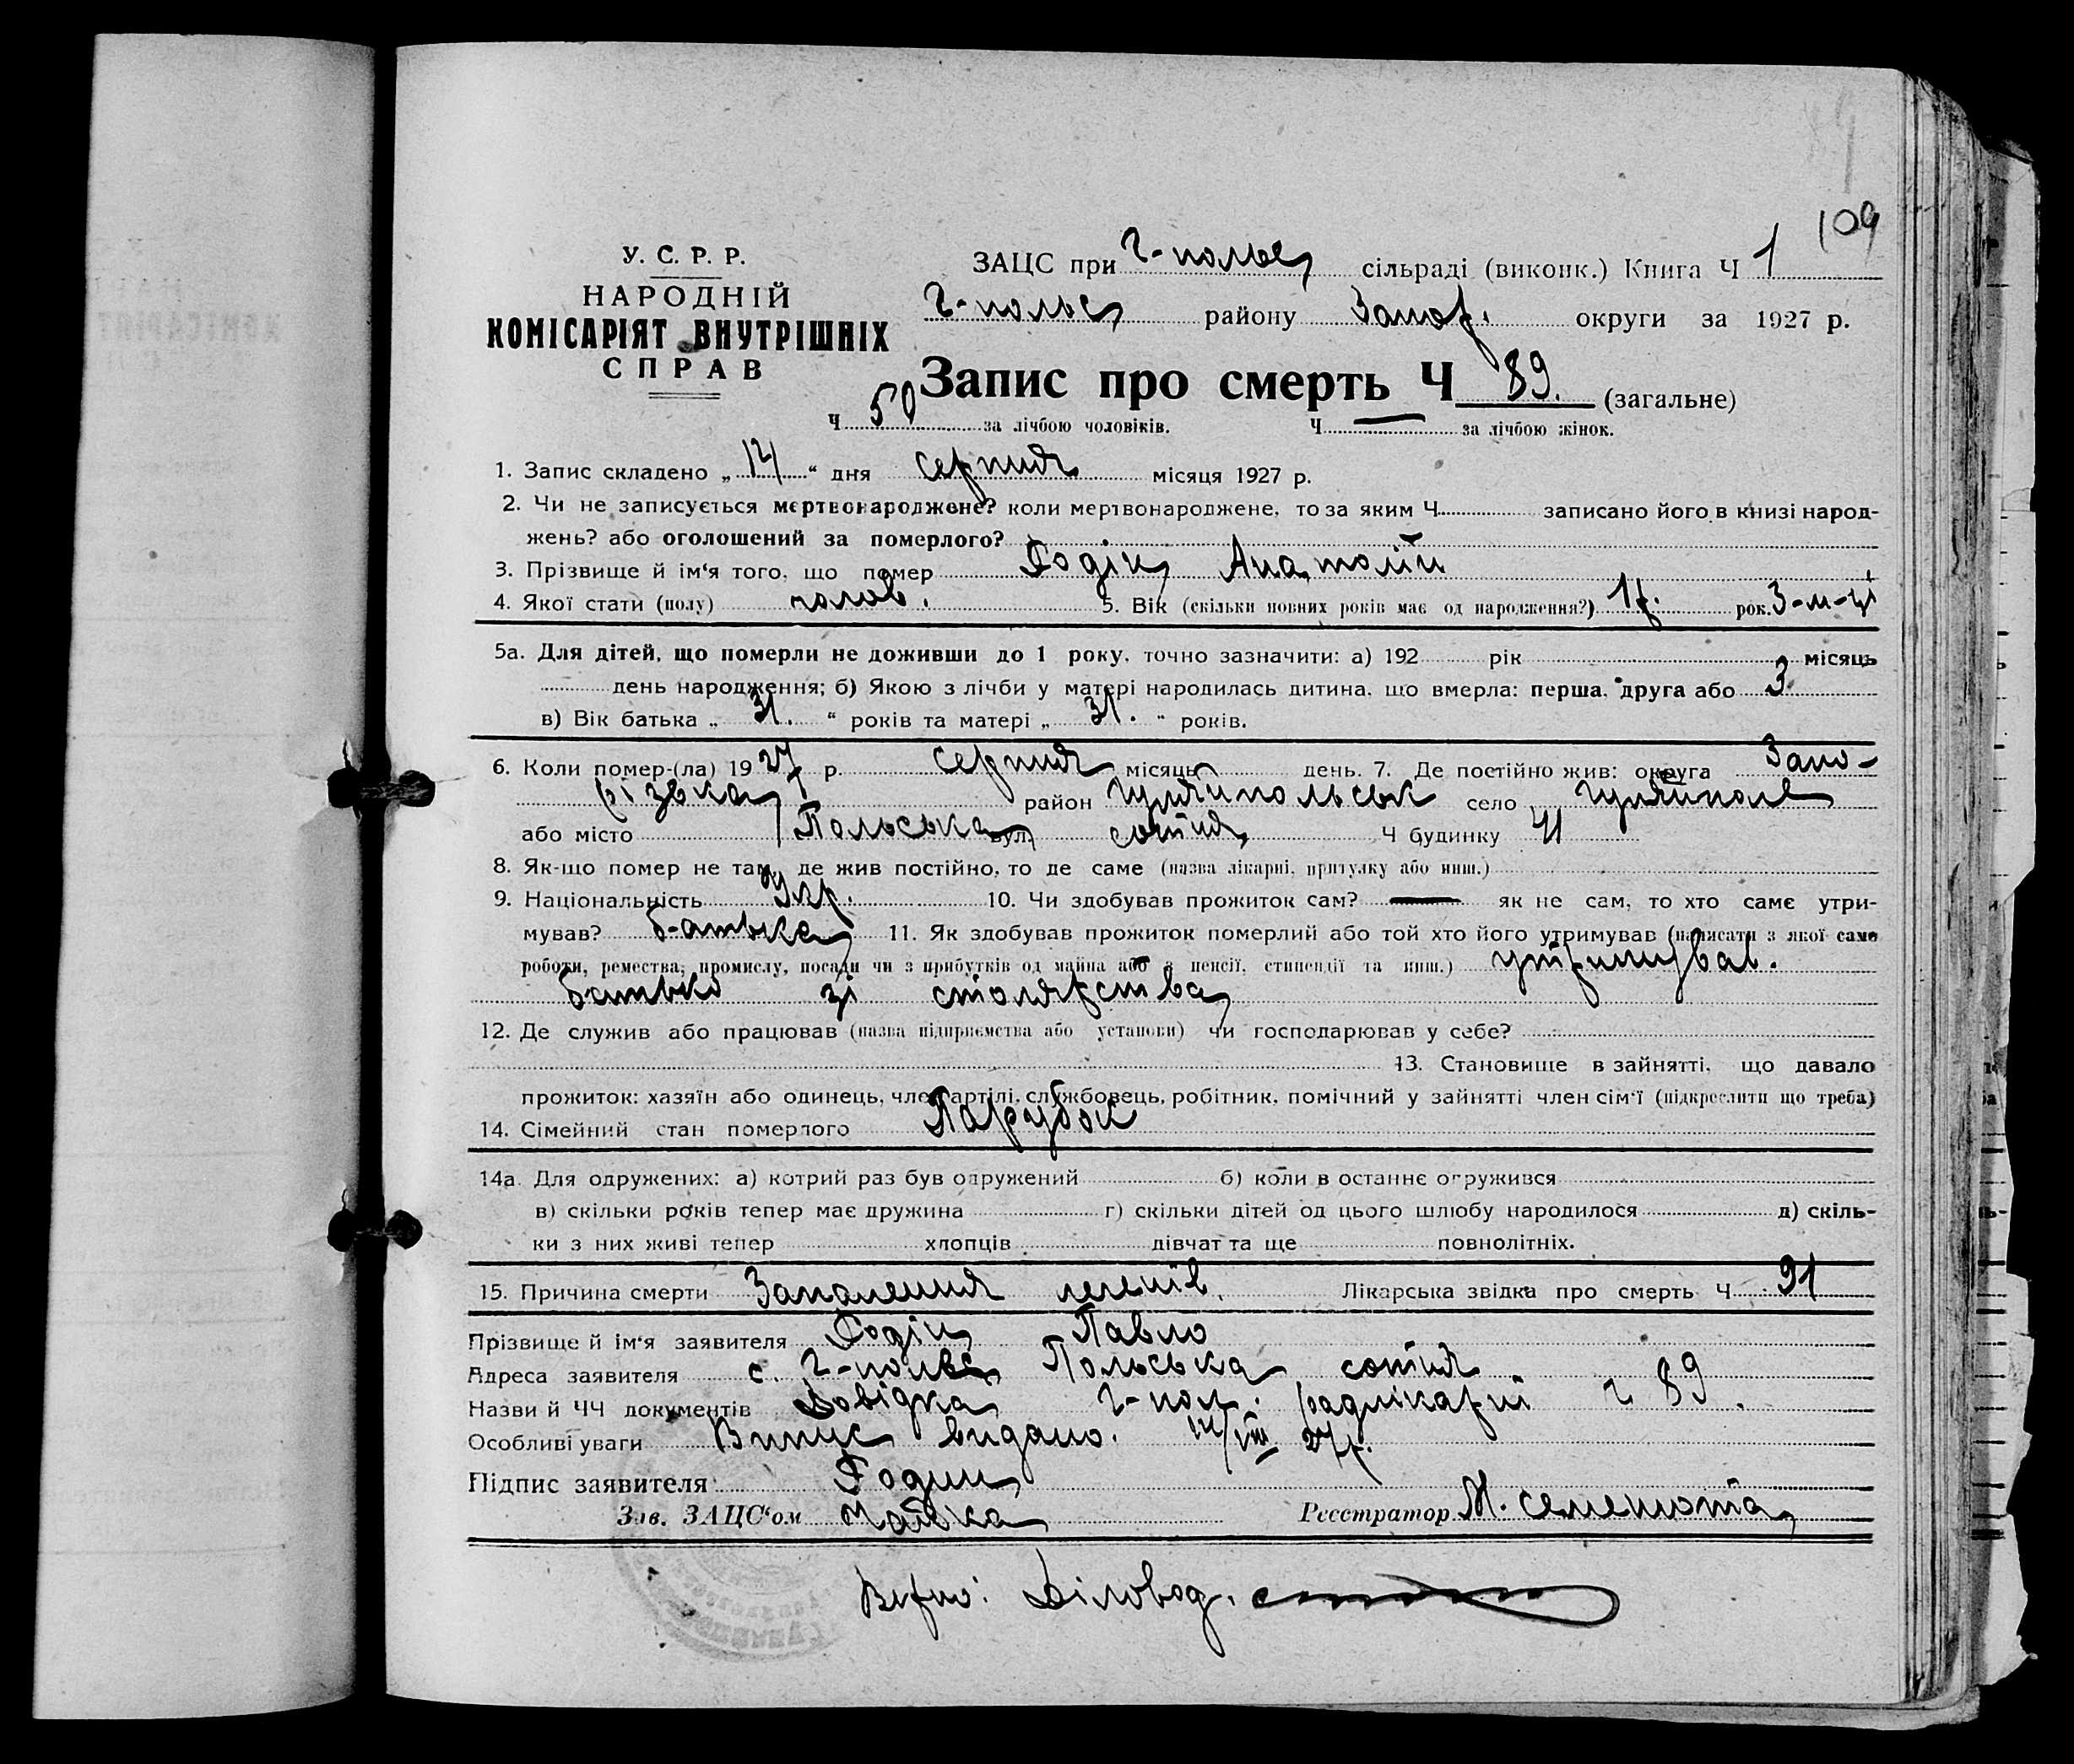 109
У. С. Р. Р.
НАРОДНІЙ
КОМІСАРІЯТ ВНУТРІШНІХ
СПРАВ
ЗАЦС при Г-польс сільраді (виконк.) Книга Ч 1
Г-польс району Запор. округи за 1927 р.
Запис про смерть Ч 89. (загальне)
Ч 50 за лічбою чоловіків. Ч — за лічбою жінок.
1. Запис складено „ “ дня серпня місяця 1927 р.
2. Чи не записується мертвонароджене? коли мертвонароджене, то за яким Ч записано його в книзі народ-
жень? або оголошений за померлого?
3. Прізвище й ім‘я того, що помер Анатолій
4. Якої стати (полу) чолов. 5. Вік (скільки повних років має од народження?) 1 р. рок. 3-м-ці
5а. Для дітей, що померли не доживши до 1 року, точно зазначити: а) 192 рік місяць
день народження; б) Якою з лічби у матері народилась дитина, що вмерла: перша, друга або 3
в) Вік батька „ 31. “ років та матері „ 31. “ років.
6. Коли помер-(ла) 1927 р. серпня місяць день. 7. Де постійно жив: округа Запо-
різька район Гуляйпольськ село Гуляйполе
або місто Польська вул. сотня Ч будинку 41
8. Як-що помер не там, де жив постійно, то де саме (назва лікарні, притулку або инш.)
9. Національність Укр. 10. Чи здобував прожиток сам? — як не сам, то хто саме утри-
мував? батька 11. Як здобував прожиток померлий або той хто його утримував (написати з якої саме
роботи, ремества, промислу, посади чи з прибутків од майна або з пенсії, стипендії та инш.) утримував.
батько зі столярства
12. Де служив або працював (назва підприємства або установи) чи господарював у себе?
13. Становище в зайнятті, що давало
прожиток: хазяїн або одинець, член артілі, службовець, робітник, помічний у зайнятті член сім‘ї (підкреслити що треба)
14. Сімейний стан померлого Парубок
14а. Для одружених: а) котрий раз був одружений б) коли в останнє одружився
в) скільки років тепер має дружина г) скільки дітей од цього шлюбу народилося д) скіль-
ки з них живі тепер хлопців дівчат та ще повнолітніх.
15. Причина смерти Запалення легенів. Лікарська звідка про смерть Ч 91
Прізвище й ім‘я заявителя Павло
Адреса заявителя с. Г-польє Польська сотня
Назви й ЧЧ документів Довідка Г-пол. радлікарні ч 89.
Особливі уваги Випис видано. /VIII 27 р.
Підпис заявителя
Зав. ЗАЦС‘ом Чайка Реєстратор М. Семенюта
Вірно: Діловод.